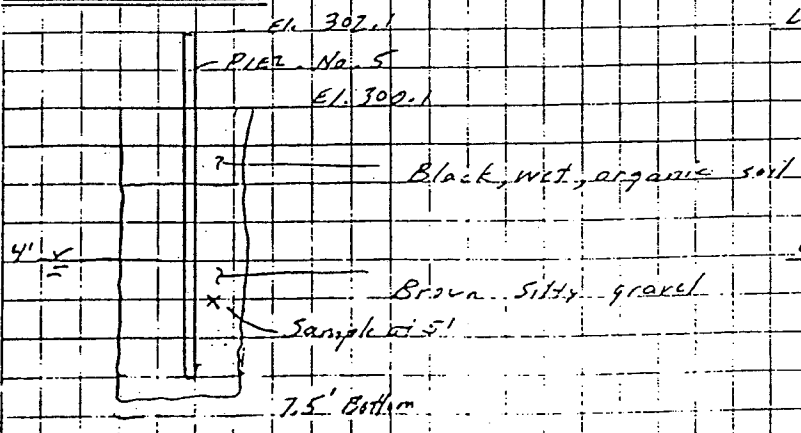 El. 302.1
PIEZ. No. 5
El. 300.1
Black, wet, organic soil
4'
Brown silty gravel
Sample at 5'
7.5' Bottom